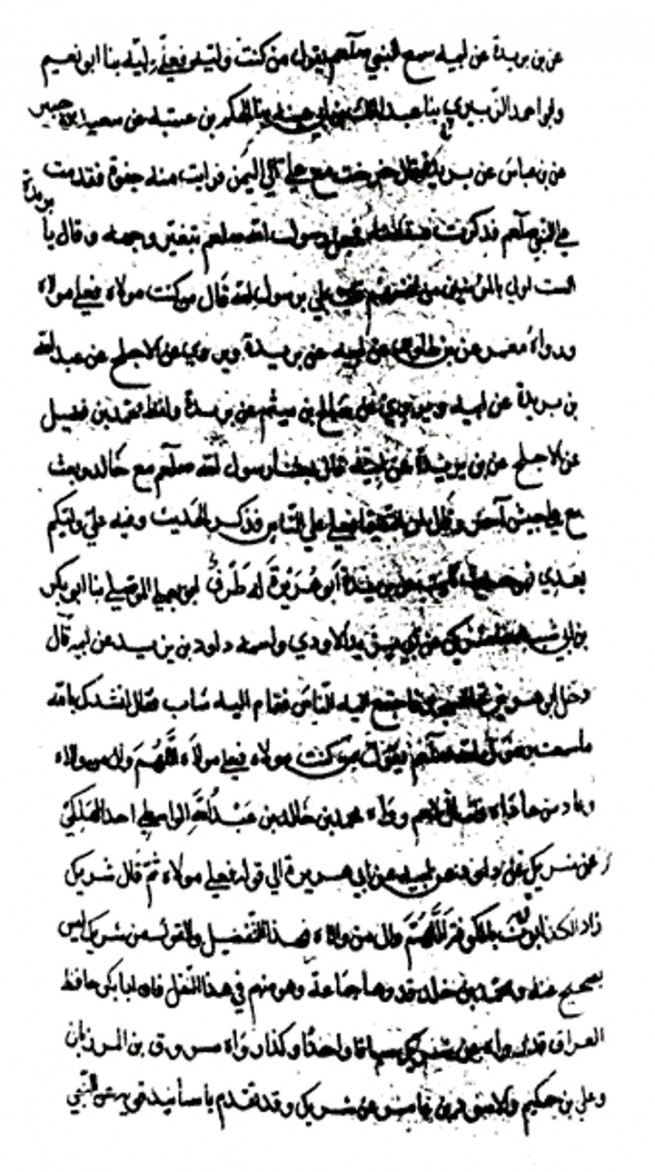 عن بن بريدة عن ابيه سمع النبي صلعم يقول من كنت وليه فعلي وليه بنا ابو نعيم
وابو احمد الزبيري بنا عبد الملك بن ابي غنية بنا الحكم بن عتيبه عن سعيد بن جبير
عن بن عباس عن بريدة قال خرجت مع علي الي اليمن فرايت منه جفوة فقدمت
علي النبي صلعم فذكرت عليا فجعل رسول الله صلعم يتغير وجهه وقال يا بريدة
الست اولي بالمؤمنين من انفسهم قلت بلي يرسول الله قال من كنت مولاه فعلي مولاه
ورواه معمر عن بن طاوس عن ابيه عن بريدة ويروي عن الاجلح عن عبد الله
بن بريدة عن ابيه ويروي عن صالح بن ميثم عن بريدة ولفظ محمد بن فضيل
عن الاجلح عن بن بريدة عن ابيه قال بعثنا رسول الله صلعم مع خالد وبعث
مع علي جيش آخر وقال ان التقيتما فعلي علي الناس فذكر الحديث وفيه علي وليكم
بعدي ابو هريرة له طرق ابو يعلي الموصلي بنا ابو بكر
بن ابي شيبة بنا شريك عن ابي يزيد الاودي واسمه داود بن يزيد عن ابيه قال
دخل ابو هريرة المسجد فاجتمع اليه الناس فقام اليه شاب فقال انشدك بالله
اسمعت رسول الله صلعم يقول من كنت مولاه فعلي مولاه اللهم وال من والاه
وعاد من عاداه فقال نعم رواه محمد بن خالد بن عبد الله الواسطي احد الهلكي
عن شريك عن داود عن ابيه عن ابي هريرة الي قوله فعلي مولاه ثم قال شريك
زاد الكذابون بالكوفة اللهم وال من والاه فهذا التفضيل والقول من شريك ليس
بصحيح عنه ومحمد بن خالد قد وهاه جماعة وهو متهم في هذا النقل فان ابا بكر حافظ
العراق قد رواه عن شريك سياقا واحدا وكذا رواه مسروق بن المرزبان
وعلي بن حكيم والاسود بن عامر عن شريك وقد تقدم باسانيد قوية عن النبي